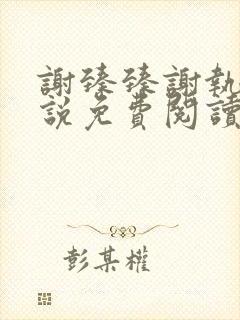 謝臻臻謝執
說免費閱讀
彭某權